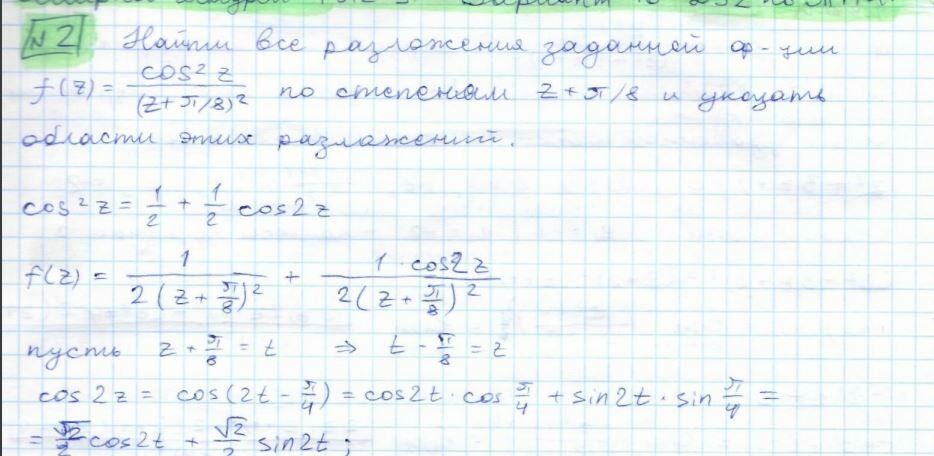 Вариант
№2 Найти все разложения заданной ф-ции
f(z) = cos² z / (z + π/8)² по степеням z + π/8 и указать
области этих разложений.
cos² z = 1/2 + 1/2 cos 2z
f(z) = 1 / 2(z + π/8)² + 1 · cos2z / 2(z + π/8)²
пусть z + π/8 = t ⇒ t - π/8 = z
cos 2z = cos(2t - π/4) = cos2t · cos π/4 + sin2t · sin π/4 =
= √2/2 cos2t + √2/2 sin2t;